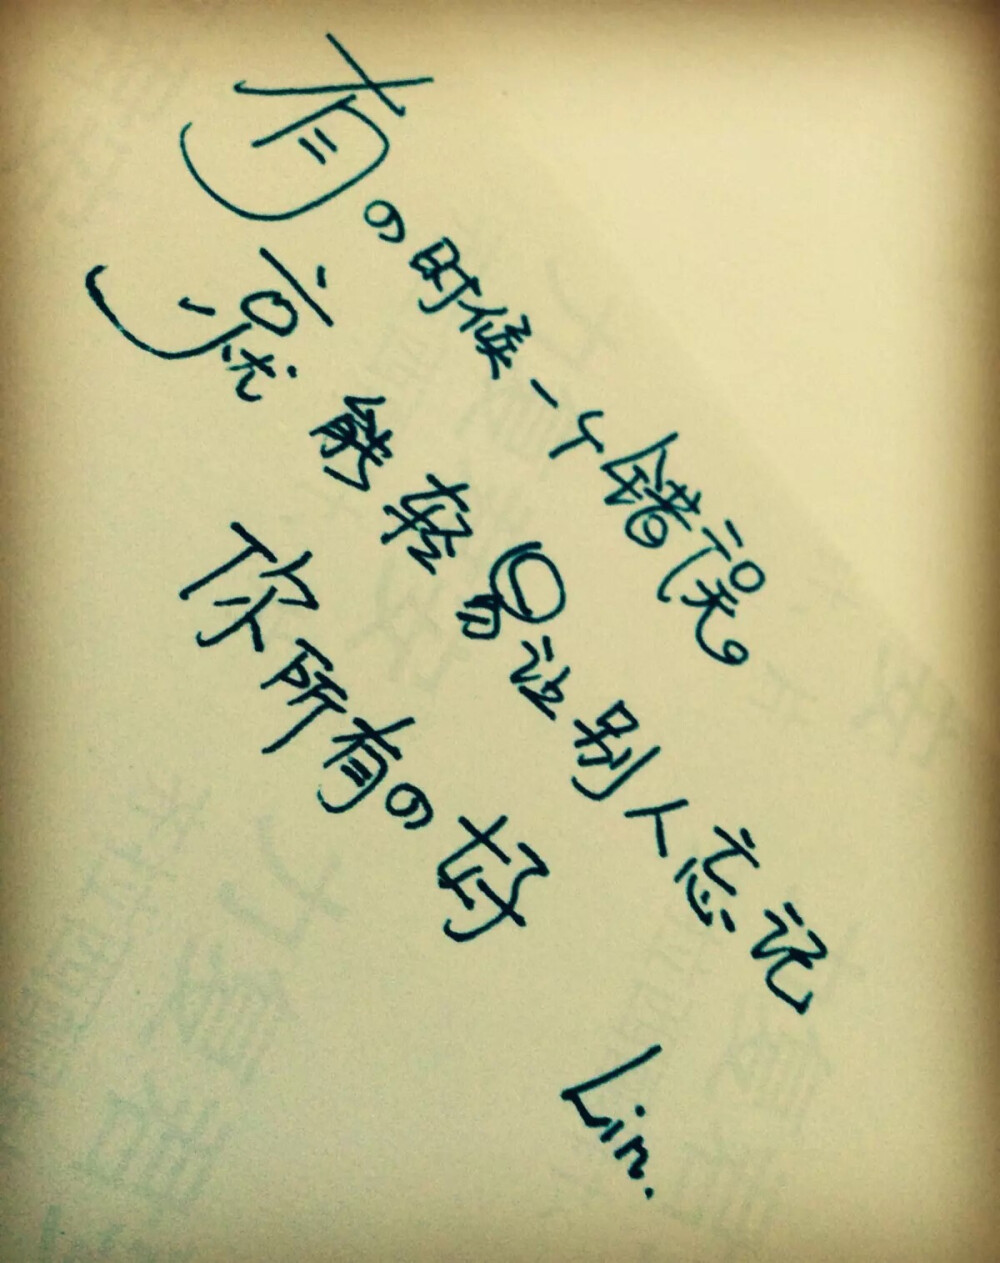 有の时候一个错误。
就能轻易让别人忘记
你所有の好
Lin.